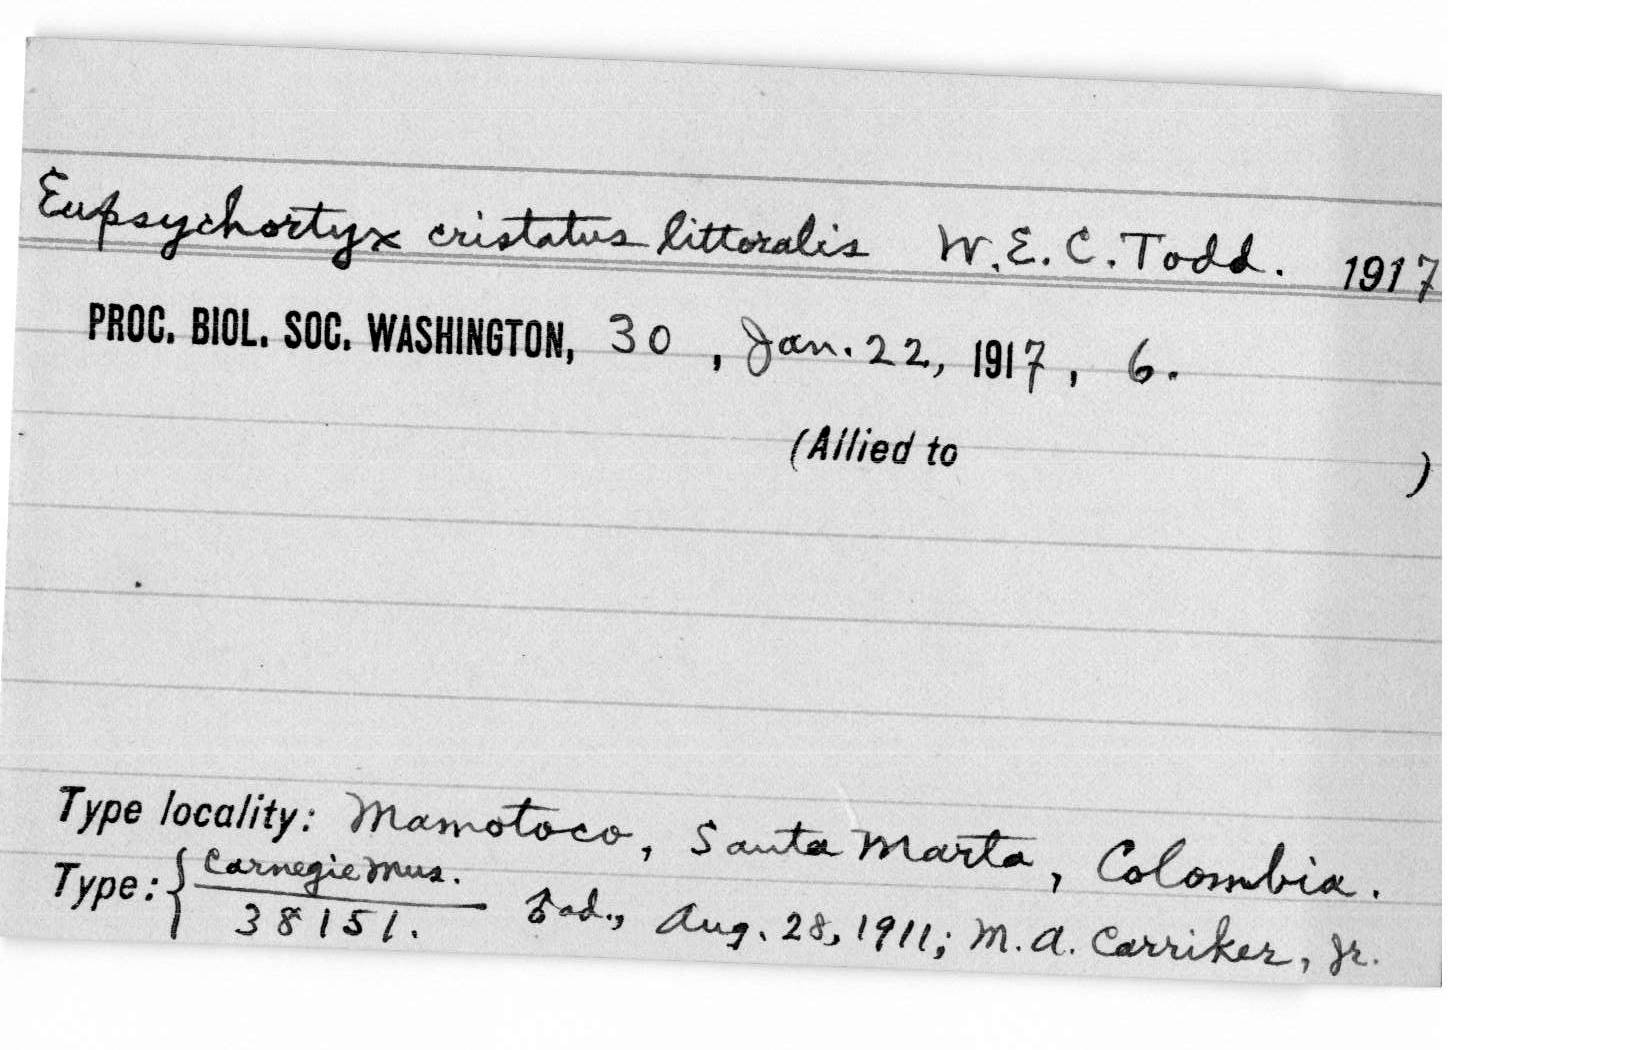 Eupsychortyx cristatus littoralis W. E. C. Todd. 1917
PROC. BIOL. SOC. WASHINGTON, 30, Jan. 22, 1917, 6.
(Allied to )
Type locality: Mamotoco, Santa Marta, Colombia.
Type: { Carnegie Mus.
38151. ad., Aug. 28, 1911; M. A. Carriker, Jr.